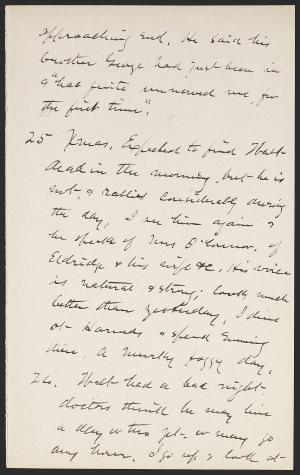 approaching end. He said his
brother George had just been in
& "has quite unnerved me, for
the first time".
25 Xmas, Expected to find Walt
dead in the morning, but he is
not, & rallies considerably during
the day, I see him again &
he speaks of Mrs O'Connor, of
Eldridge & his wife &c. His voice
is natural & strong; looks much
better than yesterday, I dine
at Harneds & spend Evening
there, A murky foggy day,
26. Walt had a bad night-
doctors think he may live
a day or two yet- or may go
any hour, I go up & look at